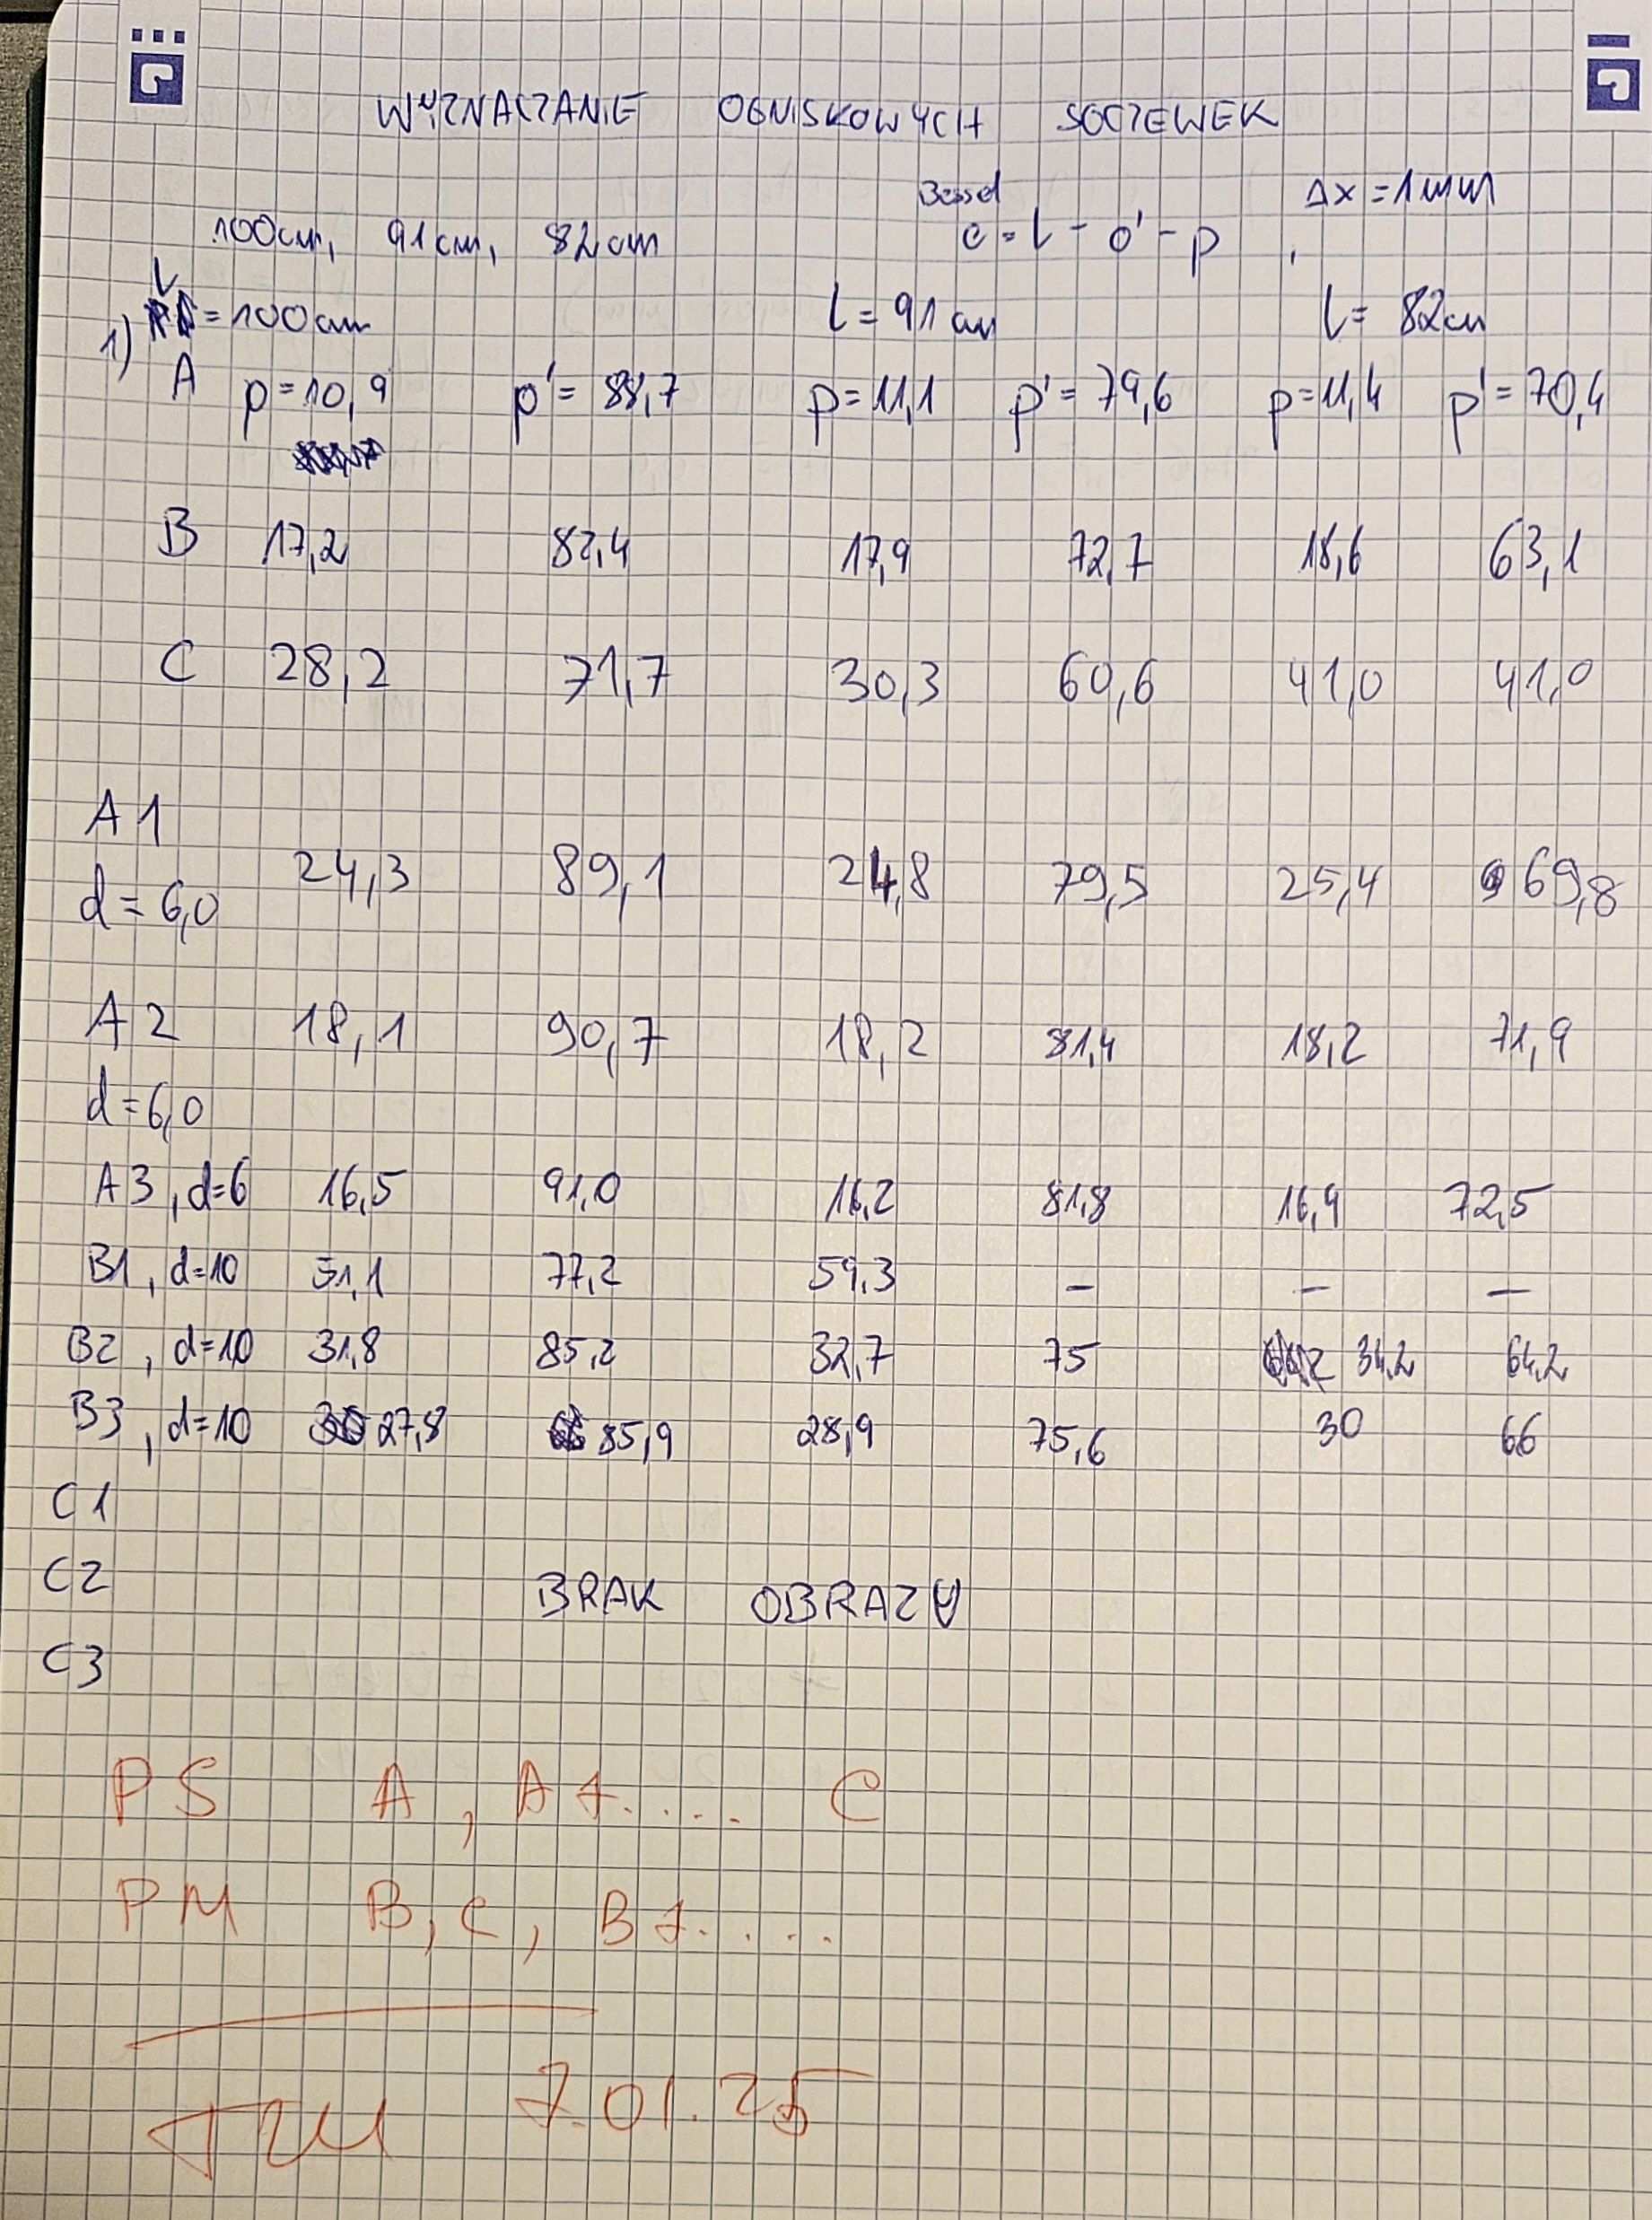 WYZNACZANIE OGNISKOWYCH SOCZEWEK
Bessel Δx = 1mm
100cm, 91cm, 82cm c = l - o' - p ,
1) L = 100cm l = 91cm l = 82cm
A p = 10,9 p' = 88,7 p = 11,1 p' = 79,6 p = 11,4 p' = 70,4
B 17,2 82,4 17,9 72,7 18,6 63,1
C 28,2 71,7 30,3 60,6 41,0 41,0
A1
d = 6,0 24,3 89,1 24,8 79,5 25,4 69,8
A2 18,1 90,7 18,2 81,4 18,2 71,9
d = 6,0
A3, d=6 16,5 91,0 16,2 81,8 16,9 72,5
B1, d=10 51,1 77,2 59,3 - - -
B2, d=10 31,8 85,2 32,7 75 34,2 64,2
B3, d=10 27,8 85,9 28,9 75,6 30 66
C1
C2 BRAK OBRAZU
C3
PS A, A1.... C
PM B, C, B1....
7.01.25